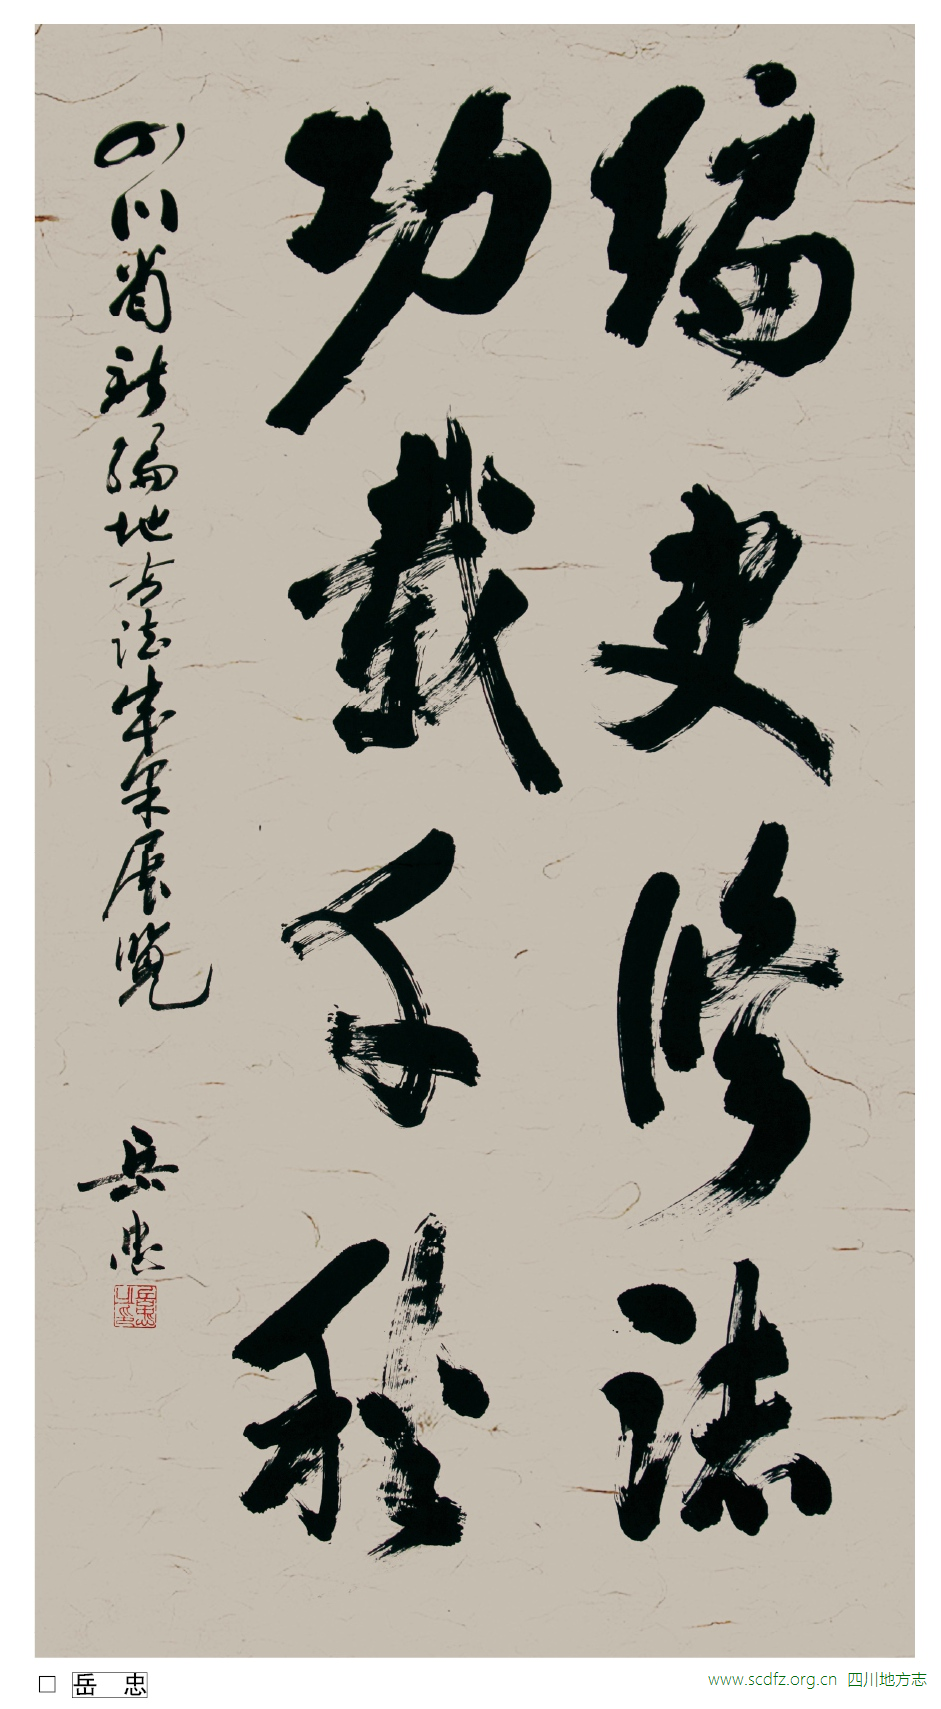 編史修誌
功載千秋
四川省新編地方誌成果展覽
岳忠
岳忠
www.scdfz.org.cn 四川地方志